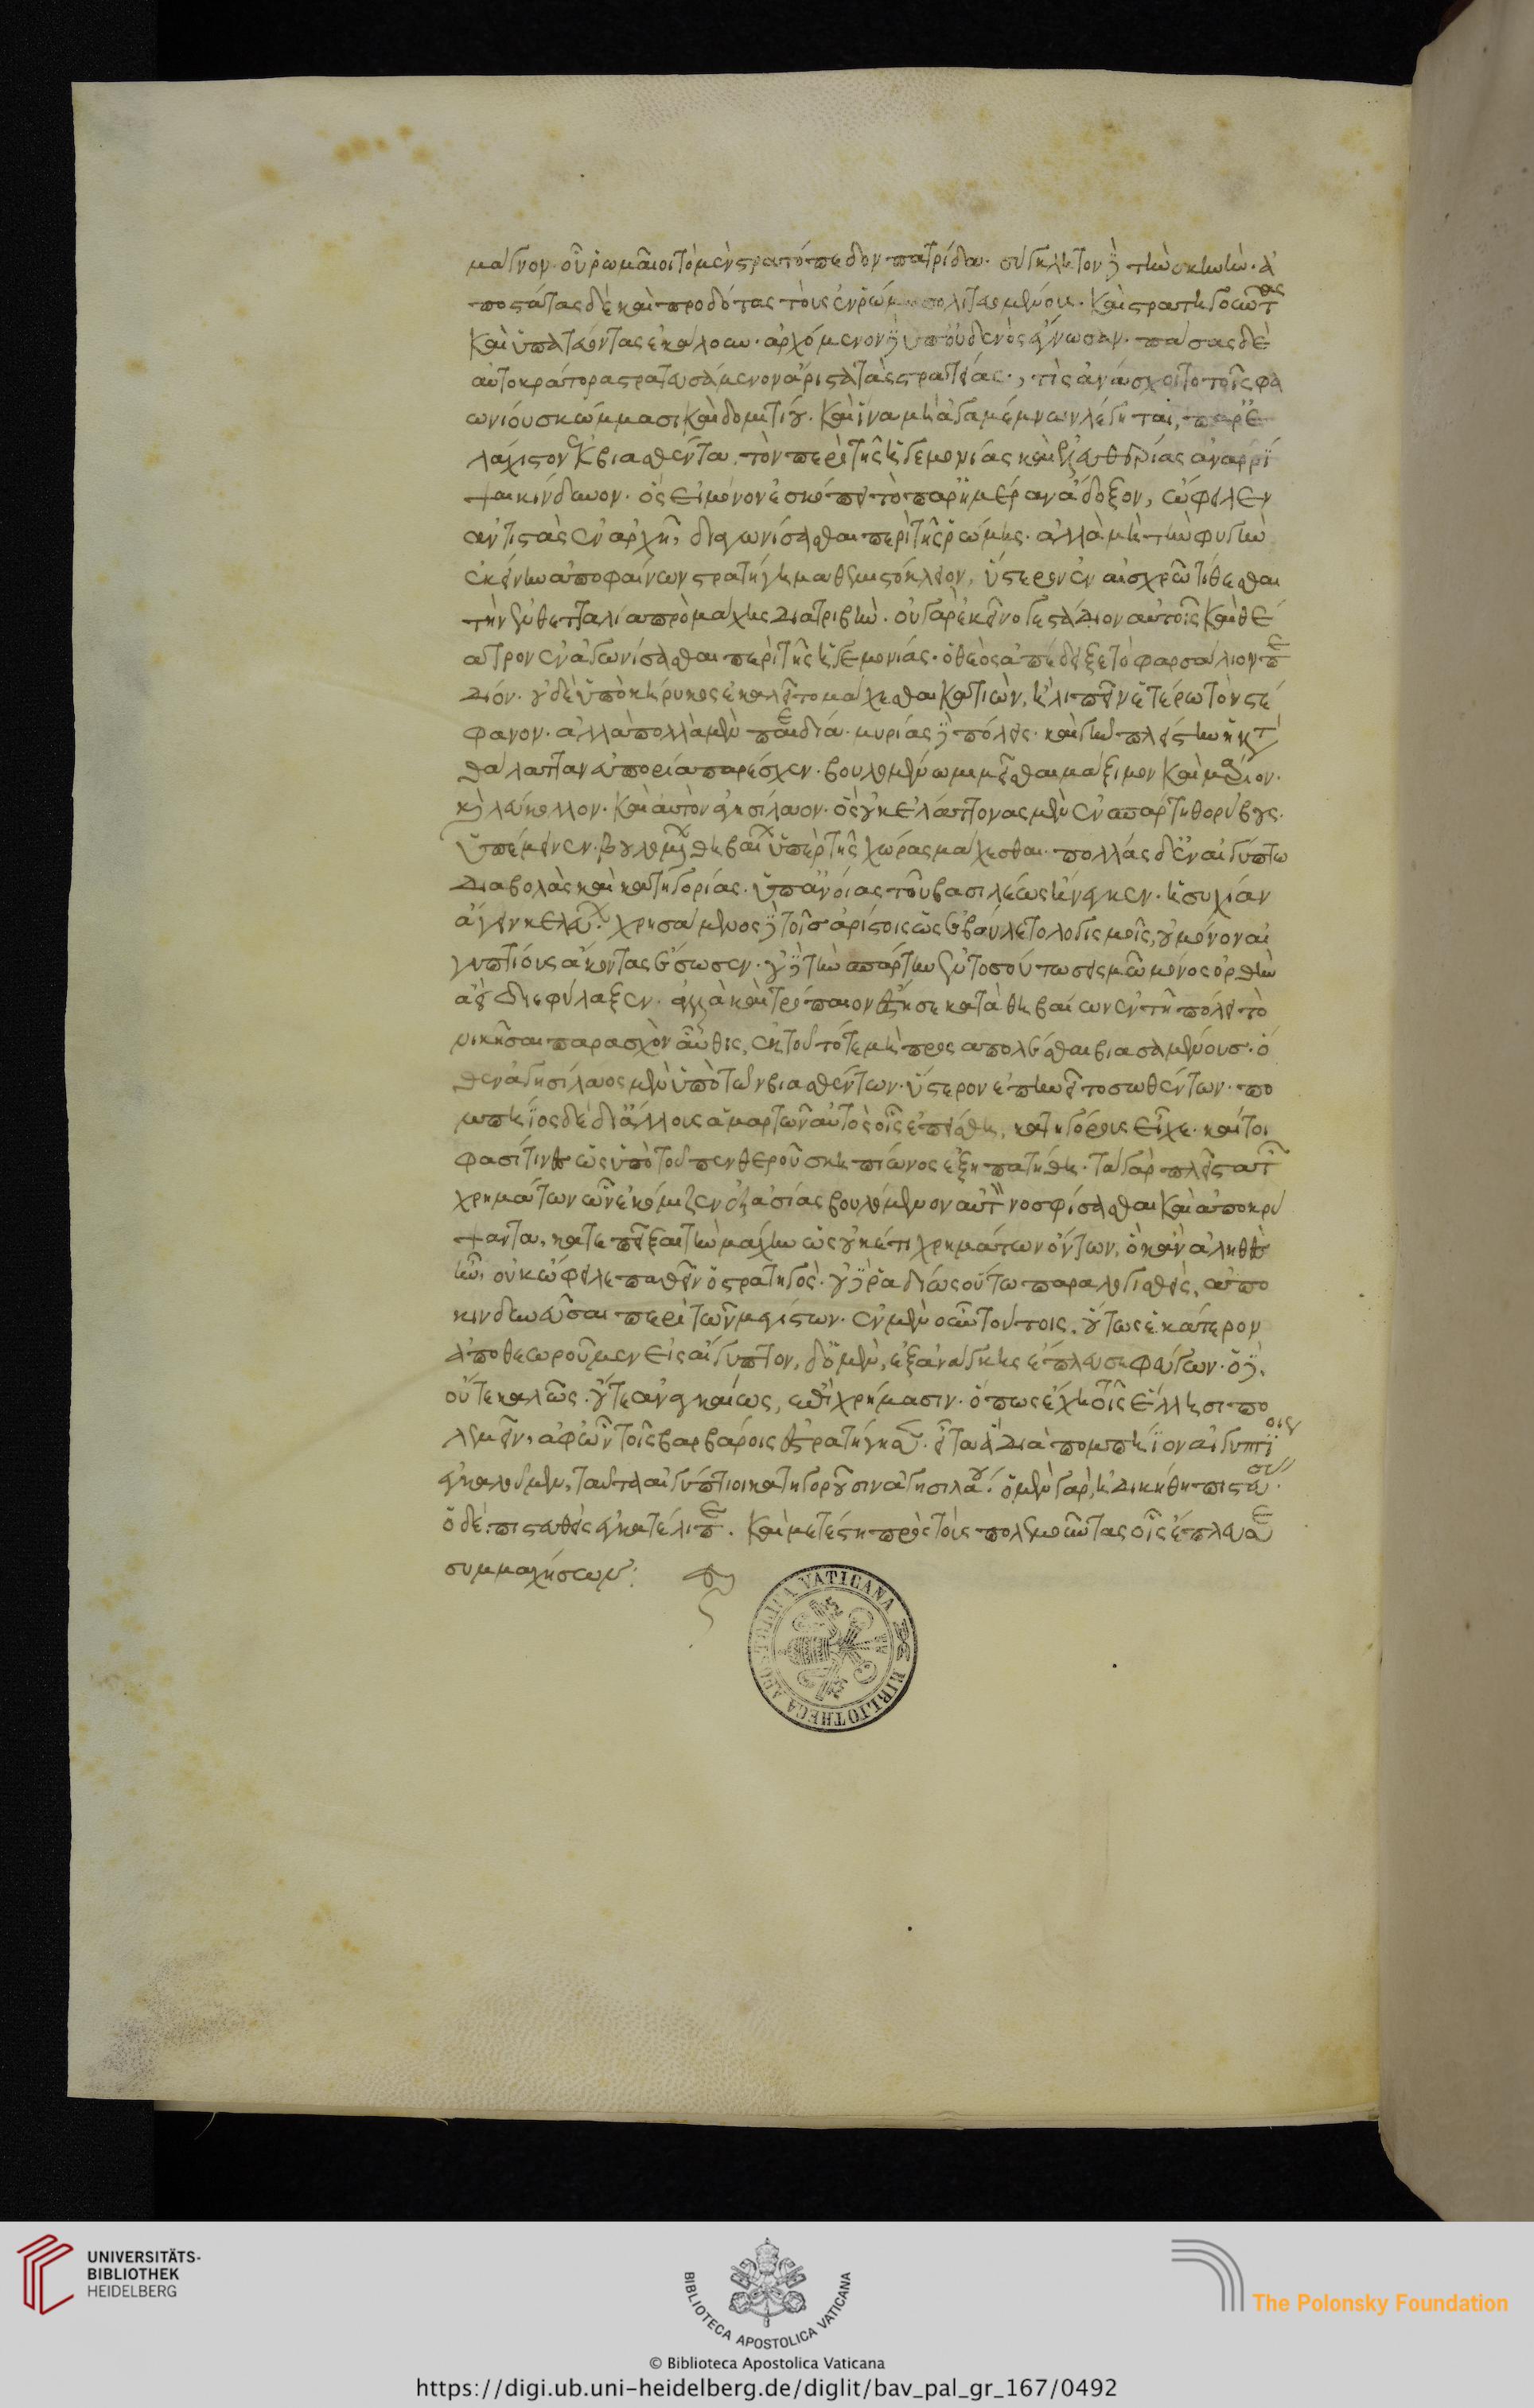 μάγνον· οὗ ῥωμαῖοι τὸ μὲν στρατόπεδον πατρίδα· σύγκλητον δὲ τὴν σκηνὴν· ἀ
ποστάτας δὲ καὶ προδότας τοὺς ἐν ῥώμῃ πολιτευομένους· καὶ στρατηγοῦντας
καὶ ὑπατεύοντας ἐκάλουν· ἀρχόμενον δὲ ὑπ' οὐδενὸς ἔγνωσαν· πάσας δὲ
αὐτοκράτορα στρατευσάμενον ἄριστα τὰς στρατείας·, τίς ἀνάσχοιτο τοῖς φα
ωνίου σκώμμασι καὶ δομιτίου. καὶ ἵνα μὴ ἀγαμέμνων λέγηται, παρ' ἐ
λάχιστον ἐκβιασθέντα, τὸν περὶ τῆς ἡγεμονίας καὶ ἐλευθερίας ἀναρρί
ψαι κίνδυνον· ὃς εἰ μόνον ἐσκόπει τὸ παρ' ἡμέραν ἄδοξον, ὤφειλεν
ἀντιστὰς ἐν ἀρχῇ, διαγωνίσασθαι περὶ τῆς ῥώμης· ἀλλὰ μὴ τὴν φυγὴν
ἐκείνην ἀποφαίνων στρατήγημα θεμιστόκλειον, ὕστερον ἐν αἰσχρῶ τίθεσθαι
τὴν ἐν θετταλία πρὸ μάχης διατριβὴν· οὐ γὰρ ἐκεῖνο γε στάδιον αὐτοῖς καὶ θέ
ατρον ἐναγωνίσασθαι περὶ τῆς ἡγεμονίας· ὁ θεὸς ἀπέδειξε τὸ φαρσάλιον πε
δίον· οὐδὲ ὑπὸ κήρυκος ἐκαλεῖτο μάχεσθαι κατιὼν, ἢ λιπεῖν ἑτέρω τὸν στέ
φανον· ἀλλὰ πολλὰ μὲν πεδία· μυρίας δὲ πόλεις· καὶ γῆν πλείστην ἡ κατὰ
θάλατταν εὐπορία παρέσχεν· βουλομένω μιμεῖσθαι μάξιμον καὶ μάριον·
καὶ λεύκολλον· καὶ αὐτὸν ἀγησίλαον· ὃς οὐκ ἐλάττονας μὲν ἐν σπάρτη θορύβους·
ὑπέμεινεν· βουλομένων θηβαίοις ὑπὲρ τῆς χώρας μάχεσθαι· πολλὰς δ' ἐν αἰγύπτω
διαβολὰς καὶ κατηγορίας· ὑπ' ἀνοίας τοῦ βασιλέως ἤνεγκεν· ἡσυχίαν
ἄγειν κελεύων· χρησάμενος δὲ τοῖς ἀρίστοις ὡς ἐβούλετο λογισμοῖς, οὐ μόνον αἰ
γυπτίους ἄκοντας ἔσωσεν· οὐδὲ τὴν σπάρτην ἐν τοσούτω σεισμῶ μόνος ὀρθὴν
ἀεὶ διεφύλαξεν· ἀλλὰ καὶ τρόπαιον ἔστησε κατὰ θηβαίων ἐν τῆ πόλει τὸ
νικῆσαι παρασχὼν αὖθις, ἐκ τοῦ τότε μὴ προσαπολέσθαι βιασαμένους· ὅ
θεν ἀγησίλαος μὲν ὑπὸ τῶν βιασθέντων· ὕστερον ἐπηνεῖτο σωθέντων· πο
μπήϊος δὲ δι' ἄλλους ἁμαρτὼν αὐτοὺς οἷς ἐπείσθη, κατηγόρους εἶχε· καίτοι
φασί τινες ὡς ὑπὸ τοῦ πενθεροῦ σκηπίωνος ἐξηπατήθη· τὰ γὰρ πλεῖστα τῶν
χρημάτων ὧν ἐκόμιζεν ἐξ ἀσίας βουλόμενον αὐτὸν νοσφίσασθαι καὶ ἀποκρύ
ψαντα, κατεπεῖξαι τὴν μάχην ὡς οὐκέτι χρημάτων ὄντων, ὃ κἂν ἀληθὲς
ἦν, οὐκ ὤφειλε παθεῖν ὁ στρατηγὸς· οὐδὲ ῥαδίως οὕτω παραλογισθεὶς, ἀπο
κινδυνεῦσαι περὶ τῶν μεγίστων· ἐν μὲν οὖν τούτοις, οὕτως ἑκάτερον
ἀποθεωροῦμεν εἰς αἴγυπτον, δ' ὁ μὲν, ἐξ ἀνάγκης ἔπλευσε φεύγων· ὁ δὲ,
οὔτε καλῶς· οὔτε ἀναγκαίως, ἐπὶ χρήμασιν· ὅπως ἔχη τοῖς ἕλλησι πο
λεμεῖν, ἀφ' ὧν τοῖς βαρβάροις ἐστρατήγησεν· εἶτα ἃ διὰ πομπήϊον αἰγυπτίοις
ἐγκαλοῦμεν, ταῦτα αἰγύπτιοι κατηγοροῦσιν ἀγησιλάου· ὁ μὲν γὰρ, ἠδικήθη πιστεύσας·
ὁ δὲ, πιστευθεὶς ἐγκατέλιπε. καὶ μετέστη πρὸς τοὺς πολεμοῦντας οἷς ἔπλευσε
συμμαχήσων:
BIBLIOTHECA APOSTOLICA VATICANA
UNIVERSITÄTS-
BIBLIOTHEK
HEIDELBERG
BIBLIOTECA APOSTOLICA VATICANA
The Polonsky Foundation
© Biblioteca Apostolica Vaticana
https://digi.ub.uni-heidelberg.de/diglit/bav_pal_gr_167/0492